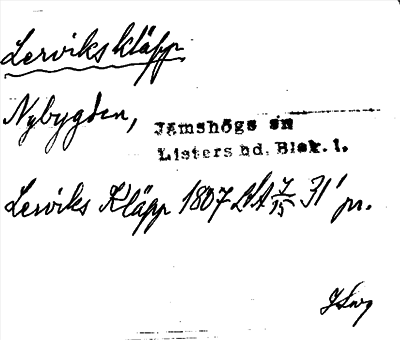 Lervikskläpp
Nybygden,
Jämshögs sn
Listers hd. Blek. l.
Lerviks Kläpp 1807 LSA 7/15 31' pr.